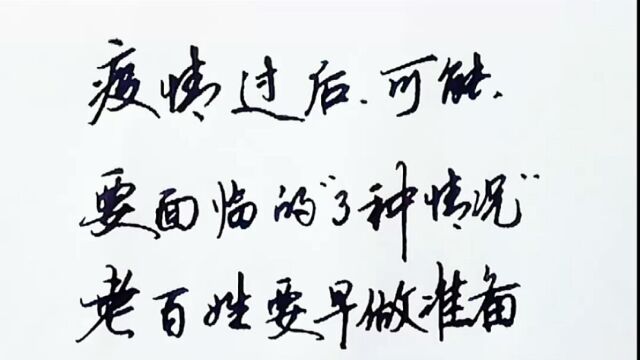 疫情过后、可能、
要面临的"3种情况"
老百姓要早做准备